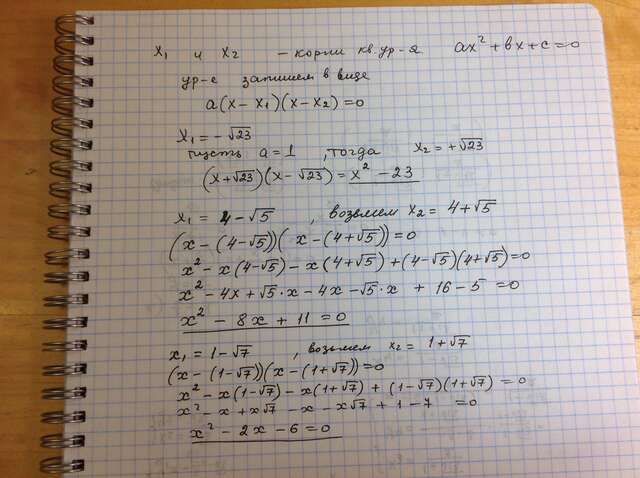 x₁ и x₂ – корни кв. ур-я ax² + bx + c = 0
ур-е запишем в виде
a(x – x₁)(x – x₂) = 0
x₁ = –√23
пусть a = 1, тогда x₂ = +√23
(x + √23)(x – √23) = x² – 23
x₁ = 4 – √5, возьмем x₂ = 4 + √5
(x – (4 – √5))(x – (4 + √5)) = 0
x² – x(4 – √5) – x(4 + √5) + (4 – √5)(4 + √5) = 0
x² – 4x + √5·x – 4x – √5·x + 16 – 5 = 0
x² – 8x + 11 = 0
x₁ = 1 – √7, возьмем x₂ = 1 + √7
(x – (1 – √7))(x – (1 + √7)) = 0
x² – x(1 – √7) – x(1 + √7) + (1 – √7)(1 + √7) = 0
x² – x + x√7 – x – x√7 + 1 – 7 = 0
x² – 2x – 6 = 0